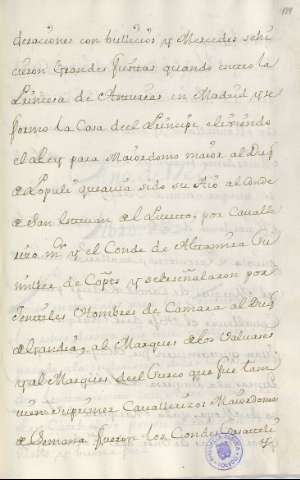 deraciones con bullicios y Mercedes se hi
cieron Grandes fiestas quando entro la
Princesa de Asturias en Madrid y se
formo la Casa del Principe eligiendo
el Rey para Maiordomo maior al Duq
de Populi que auia sido su Aio al Conde
de San Isteuan del Puerto, por Cavall
rizo mr y el Conde de Altamira Su
miller de Corps y se señalaron por
Gentiles Hombres de Camara al Duq
de Gandia, al Marques de los Valuases
y al Marques del Surco que fue tam
vien Primer Cavallerizo Maiordomos
de Semana fueron los Condes